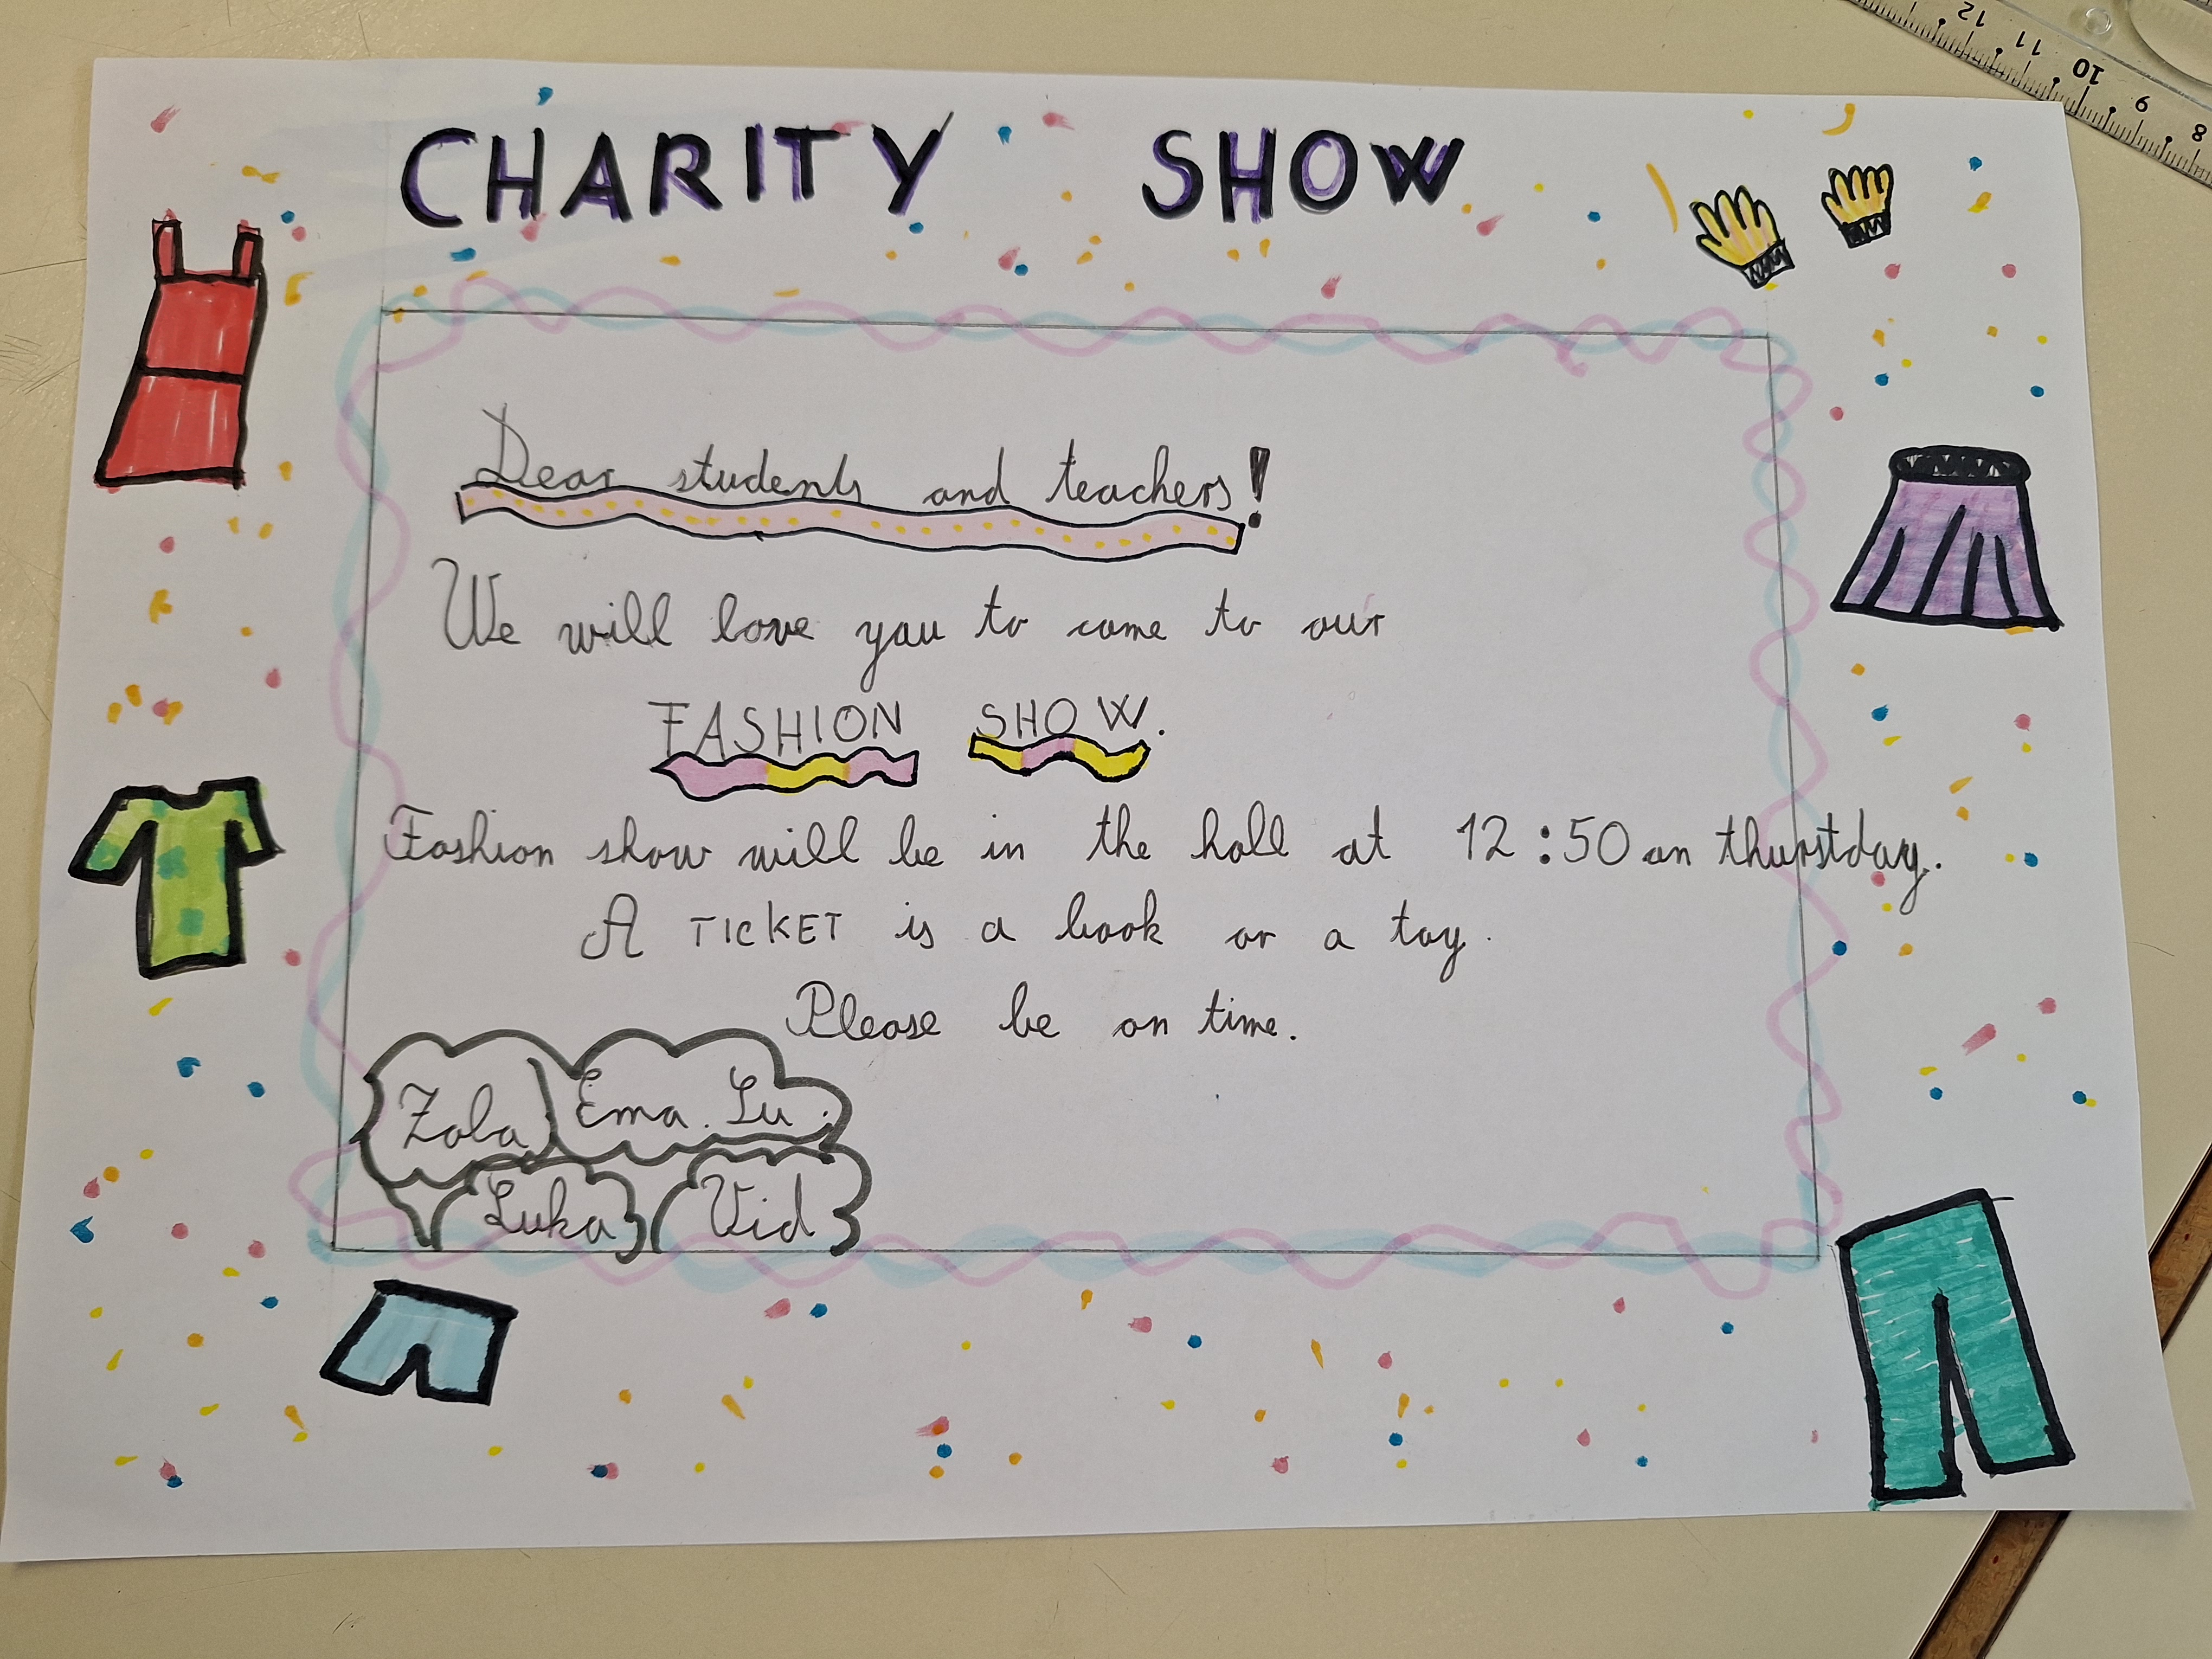 CHARITY SHOW
Dear students and teachers!
We will love you to come to our
FASHION SHOW.
Fashion show will be in the hall at 12:50 on thurstday.
A TICKET is a book or a toy.
Please be on time.
Zala Ema. Lu.
Luka Vid
12 11 10 9 8